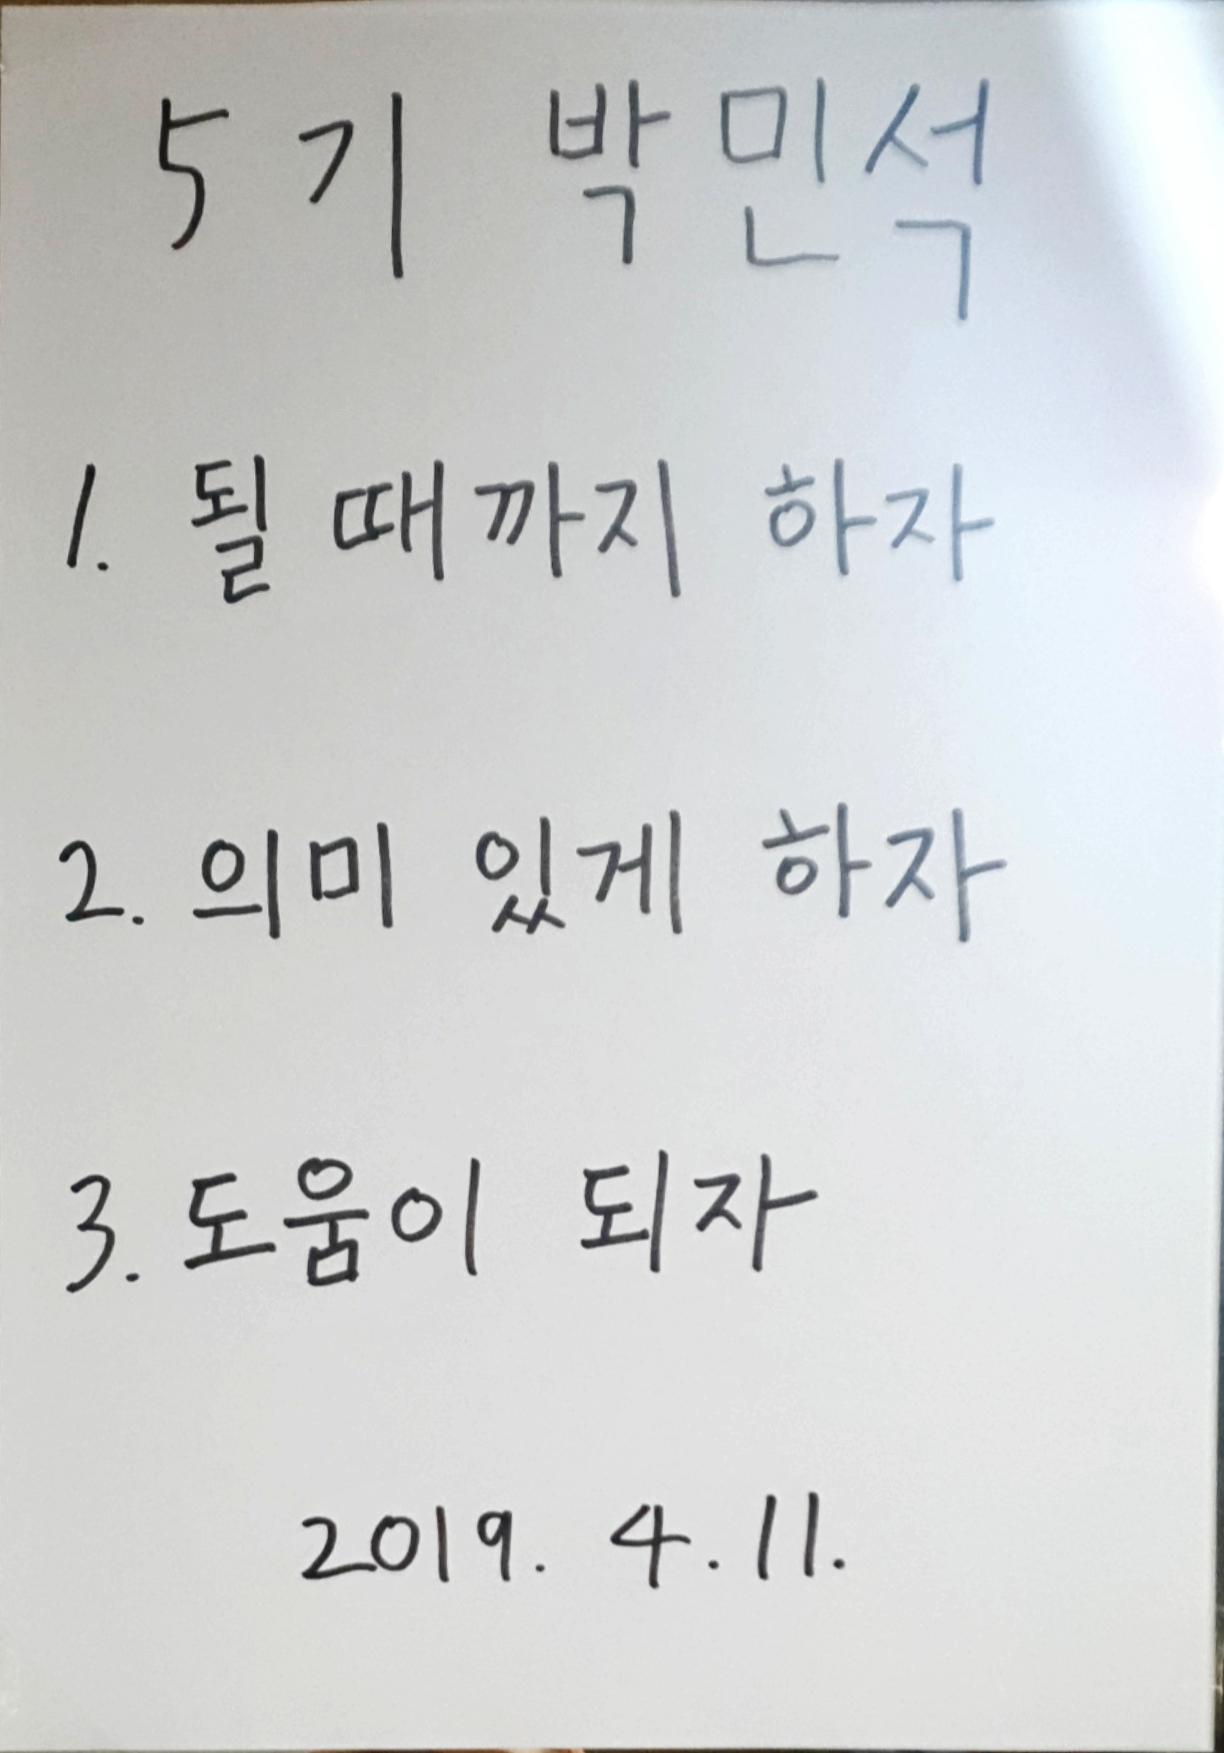 5기 박민석
1. 될 때까지 하자
2. 의미 있게 하자
3. 도움이 되자
2019. 4. 11.